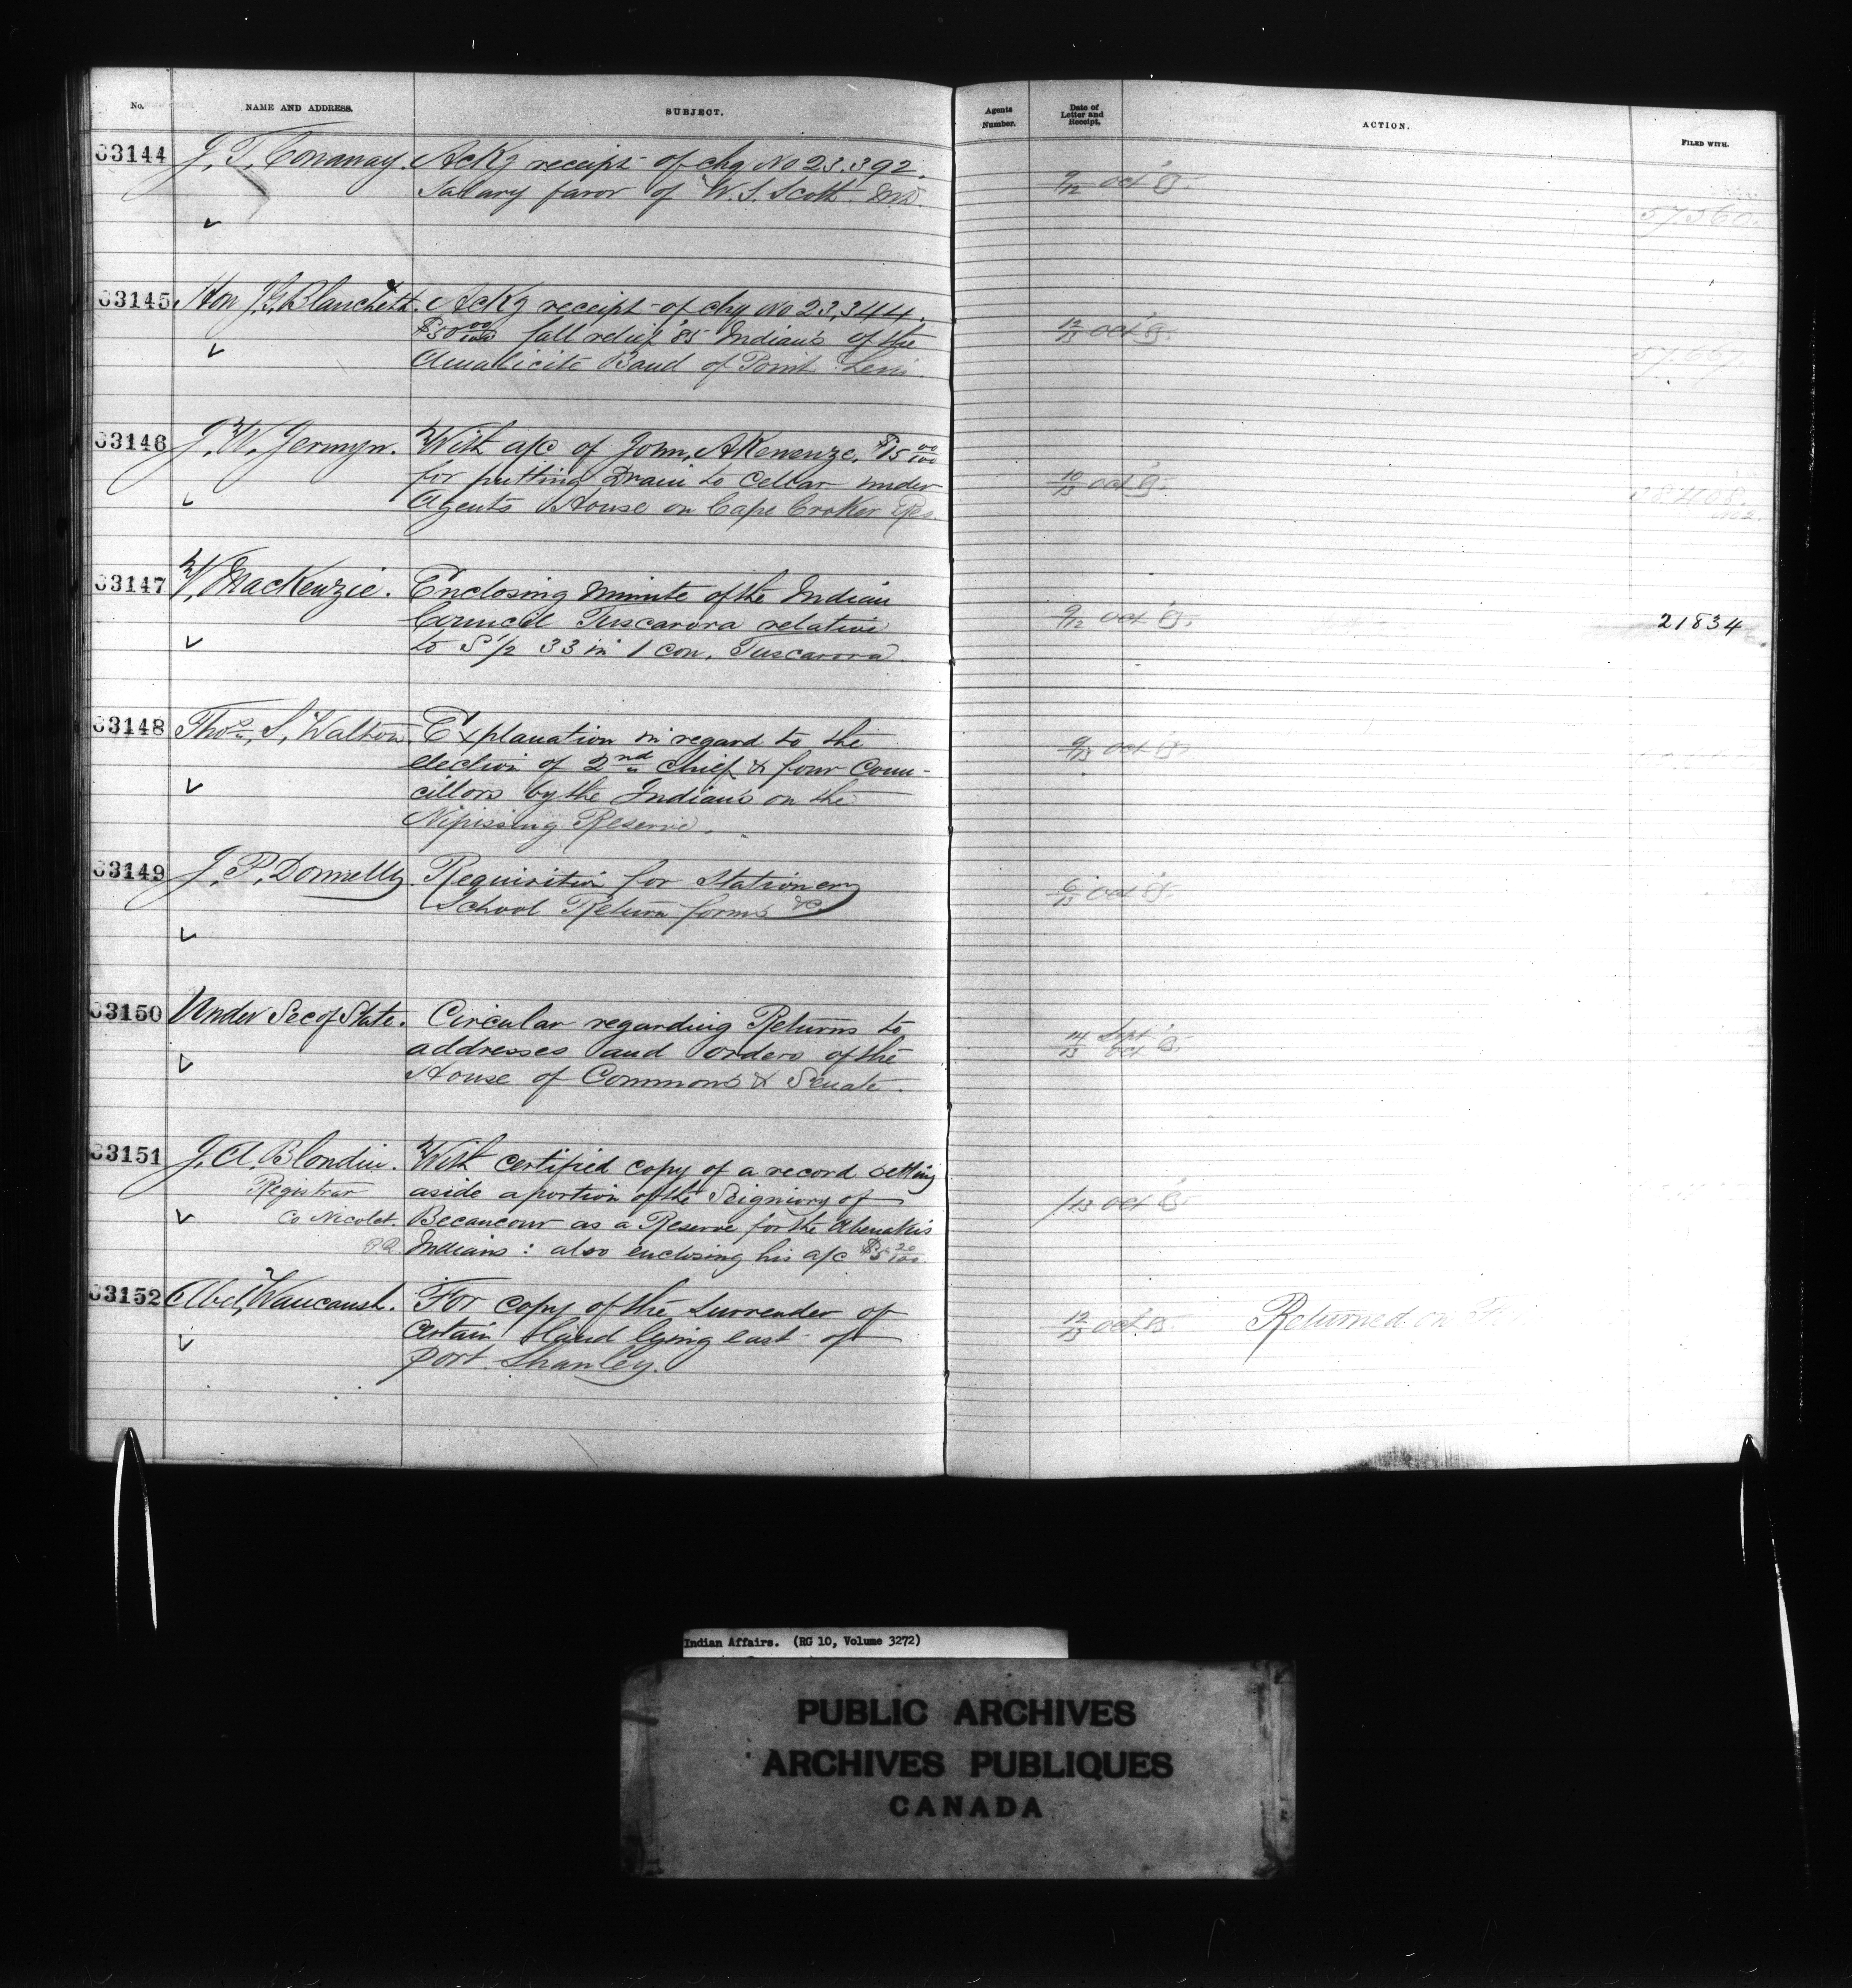 No. NAME AND ADDRESS. SUBJECT. Agents Number. Date of Letter and Receipt. ACTION. FILED WITH.
63144 J. T. Conaway. Ackg receipt of chq No 23.392. 9/12 Oct '85
Salary favor of W. S. Scott. MD. 57560.
63145 Hon J. G. Blanchett. Ackg receipt of chq No 23,344. 12/13 Oct '85.
$50 00/100 fall relief '85 Indians of the 57.667.
Amalicite Band of Point Levi.
63146 J. W. Jermyn. With a/c of John, Akewenze. $15 00/100
for putting Drain to Cellar under 10/13 Oct '85.
Agents House on Cape Croker Res.
63147 W, MacKenzie. Enclosing Minute of the Indian
Council Tuscarora relative 9/12 Oct '85. 21834
to S 1/2 33 in 1 Con, Tuscarora.
63148 Thos, S, Walton. Explanation in regard to the
election of 2nd Chief & four Coun- 9/13 Oct '85
cillors by the Indians on the
Nipissing Reserve.
63149 J. P. Donnelly Requisition for Stationery 6/13 Oct '85.
School Return forms &c.
63150 Under Sec of State. Circular regarding Returns to
addresses and orders of the 14/13 Sept Oct '85.
House of Commons & Senate.
63151 J. A. Blondin. With Certified Copy of a record setting
Registrar aside a portion of the Seigniory of /13 Oct '85
Co Nicolet. Becancour as a Reserve for the Abenakis
P.Q. Indians : also enclosing his a/c $5 20/100.
63152 Abel, Waucaush. For Copy of the Surrender of
Certain Land lying east of 12/13 Oct '85. Returned on
Port Shanley.
Indian Affairs. (RG 10, Volume 3272)
PUBLIC ARCHIVES
ARCHIVES PUBLIQUES
CANADA